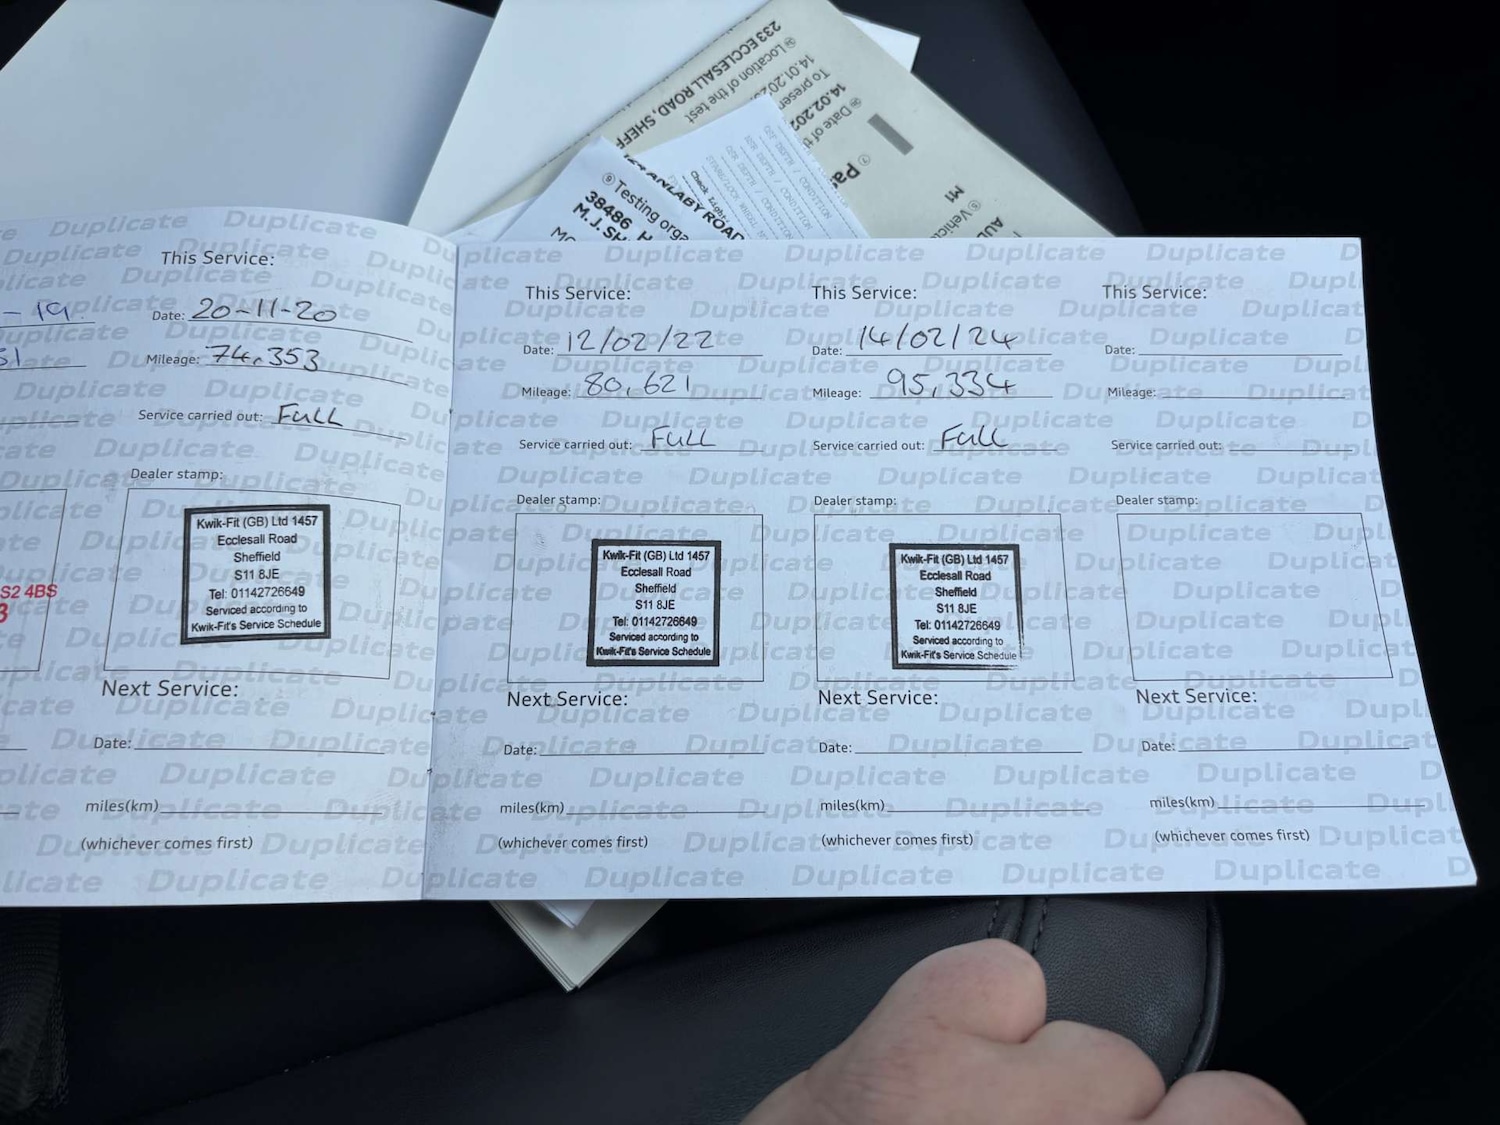 233 ECCLESALL ROAD, SHEFF
Location of the test
14.01.202
To preser
14.02.202
Date of t
Pa
M1
Vehicl
AU
Testing orga
38486 H
M. J. SH
MO
ANLABY ROAD
Check Light
Duplicate
- 19
51
S2 4BS
3
This Service:
Date: 20-11-20
Mileage: 74,353
Service carried out: FULL
Dealer stamp:
Kwik-Fit (GB) Ltd 1457
Ecclesall Road
Sheffield
S11 8JE
Tel: 01142726649
Serviced according to
Kwik-Fit's Service Schedule
Next Service:
Date:
miles(km)
(whichever comes first)
This Service:
Date: 12/02/22
Mileage: 80,621
Service carried out: FULL
Dealer stamp:
Kwik-Fit (GB) Ltd 1457
Ecclesall Road
Sheffield
S11 8JE
Tel: 01142726649
Serviced according to
Kwik-Fit's Service Schedule
Next Service:
Date:
miles(km)
(whichever comes first)
This Service:
Date: 14/02/24
Mileage: 95,334
Service carried out: Full
Dealer stamp:
Kwik-Fit (GB) Ltd 1457
Ecclesall Road
Sheffield
S11 8JE
Tel: 01142726649
Serviced according to
Kwik-Fit's Service Schedule
Next Service:
Date:
miles(km)
(whichever comes first)
This Service:
Date:
Mileage:
Service carried out:
Dealer stamp:
Next Service:
Date:
miles(km)
(whichever comes first)